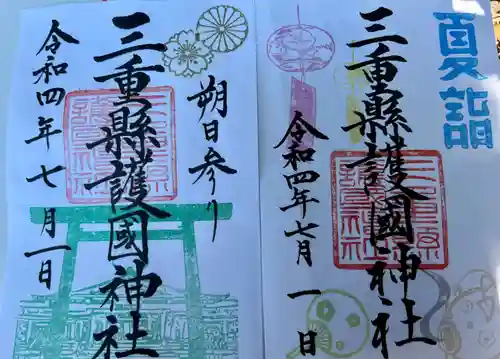 朔日参り
三重縣護國神社
令和四年七月一日
夏詣
三重縣護國神社
令和四年七月一日